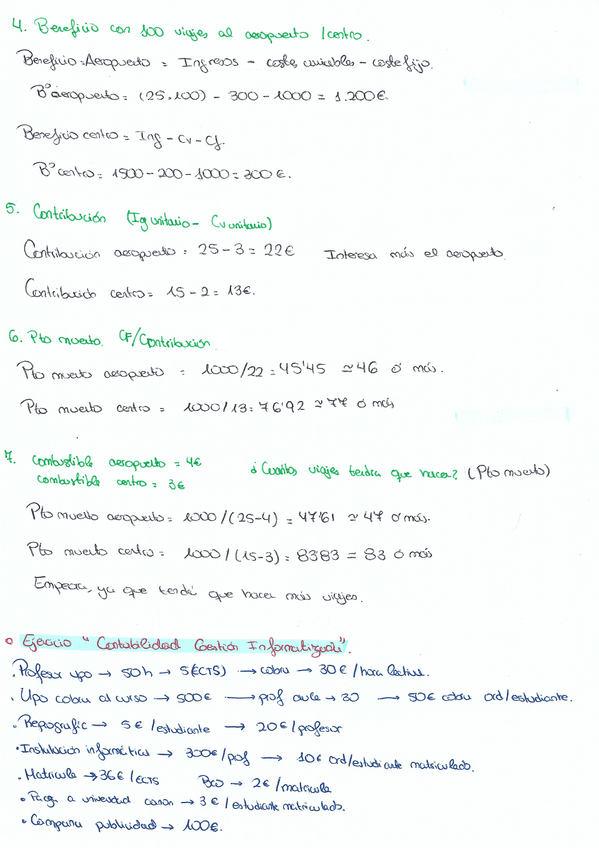 4. Beneficio con 100 viajes al aeropuerto /centro.
Beneficio Aeropuerto = Ingresos - costes variables - coste fijo.
Bº aeropuerto = (25·100) - 300 - 1000 = 1.200€.
Beneficio centro = Ing - Cv - Cf.
Bº centro = 1500 - 200 - 1000 = 300€.
5. Contribución (Ig unitario - Cv unitario)
Contribución aeropuerto = 25 - 3 = 22€ Interesa más el aeropuerto.
Contribución centro = 15 - 2 = 13€.
6. Pto muerto. CF/Contribución
Pto muerto aeropuerto = 1000/22 = 45'45 ≃ 46 ó más.
Pto muerto centro = 1000/13 = 76'92 ≃ 77 ó más
7. Combustible aeropuerto = 4€ ¿Cuántos viajes tendrá que hacer? (Pto muerto)
combustible centro = 3€
Pto muerto aeropuerto = 1000/(25-4) = 47'61 ≃ 47 ó más.
Pto muerto centro = 1000/(15-3) = 8383 = 83 ó más
Empeora, ya que tendrá que hacer más viajes.
o Ejercicio "Contabilidad Gestión Informatizada".
· Profesor upo → 50h → 5(ECTS) → cobra → 30€/hora lectiva.
· Upo cobra al curso → 500€ → prof aula → 30 → 50€ cobra ord/estudiante.
· Reprografic → 5€/estudiante → 20€/profesor
· Instalación informática → 300€/prof → 10€ ord/estudiante matriculado.
· Matricula → 36€/ECTS Bco → 2€/matricula
· Paga a universidad canon → 3€/estudiante matriculado.
· Campaña publicidad → 100€.